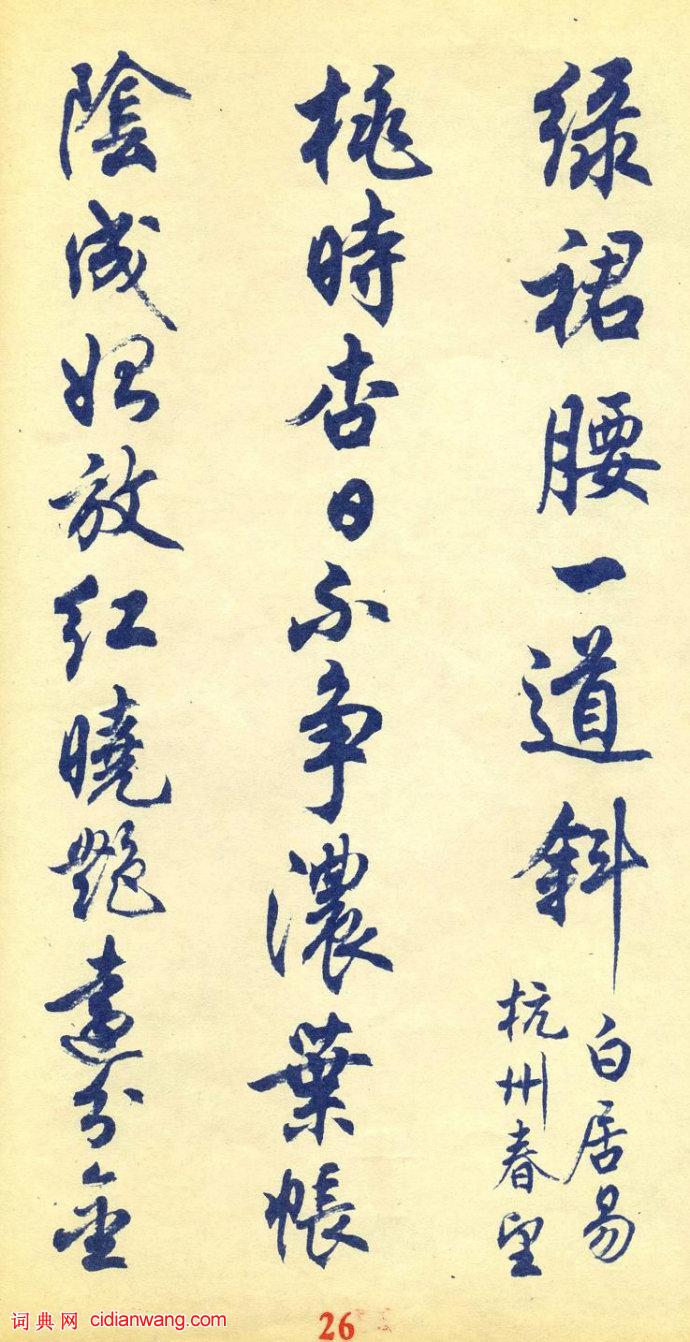 綠裙腰一道斜
白居易
杭州春望
桃時杏日不爭濃葉帳
陰成始放紅曉艷遠分金
词典网 cidianwang.com
26